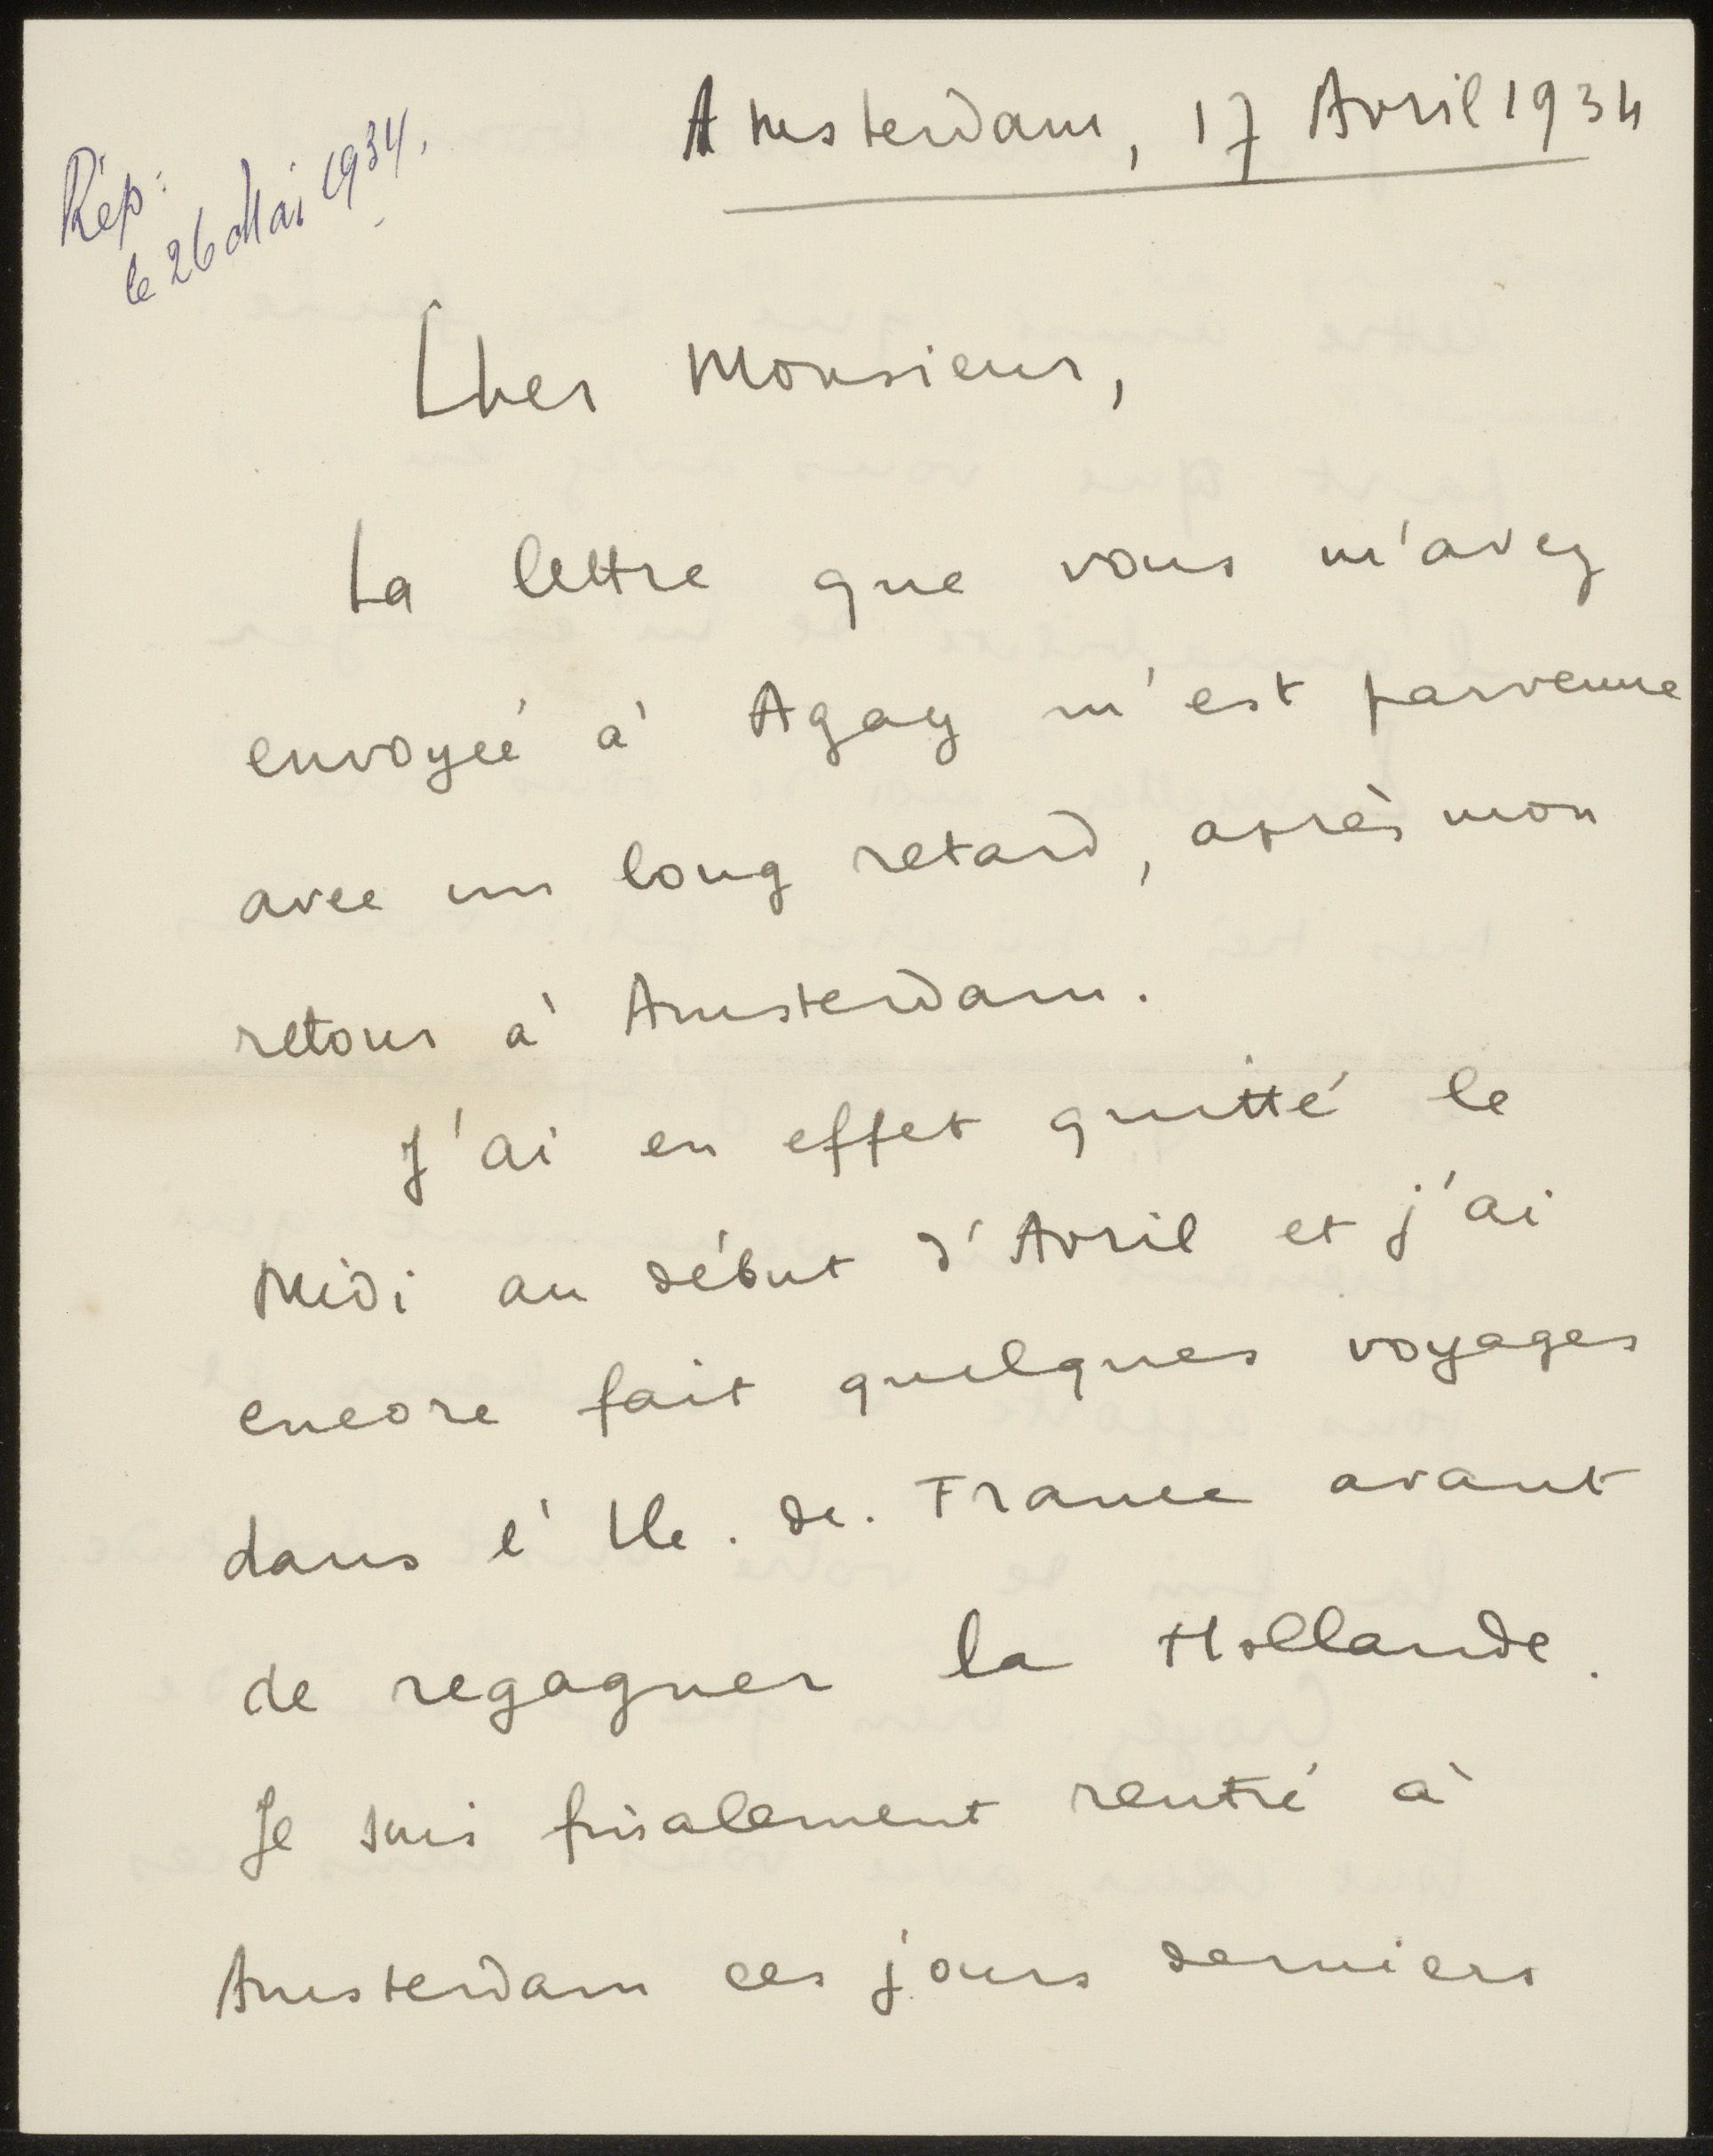 Amsterdam, 17 Avril 1934
Rép:
le 26 Mai 1934.
Cher Monsieur,
La lettre que vous m'avez
envoyée à Agay m'est parvenue
avec un long retard, après mon
retour à Amsterdam.
J'ai en effet quitté le
Midi au début d'Avril et j'ai
encore fait quelques voyages
dans l'Ile-de-France avant
de regagner la Hollande.
Je suis finalement rentré à
Amsterdam ces jours derniers